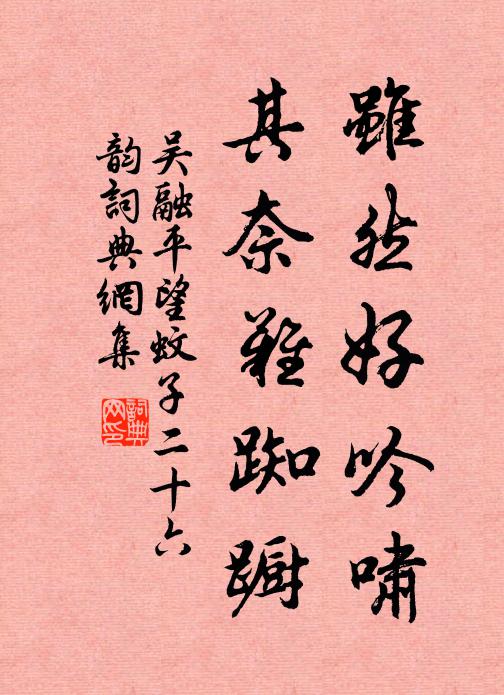 雖然好吟嘯
其奈難踟蹰
吳融平望蚊子二十六
韵詞典網集
詞典网印